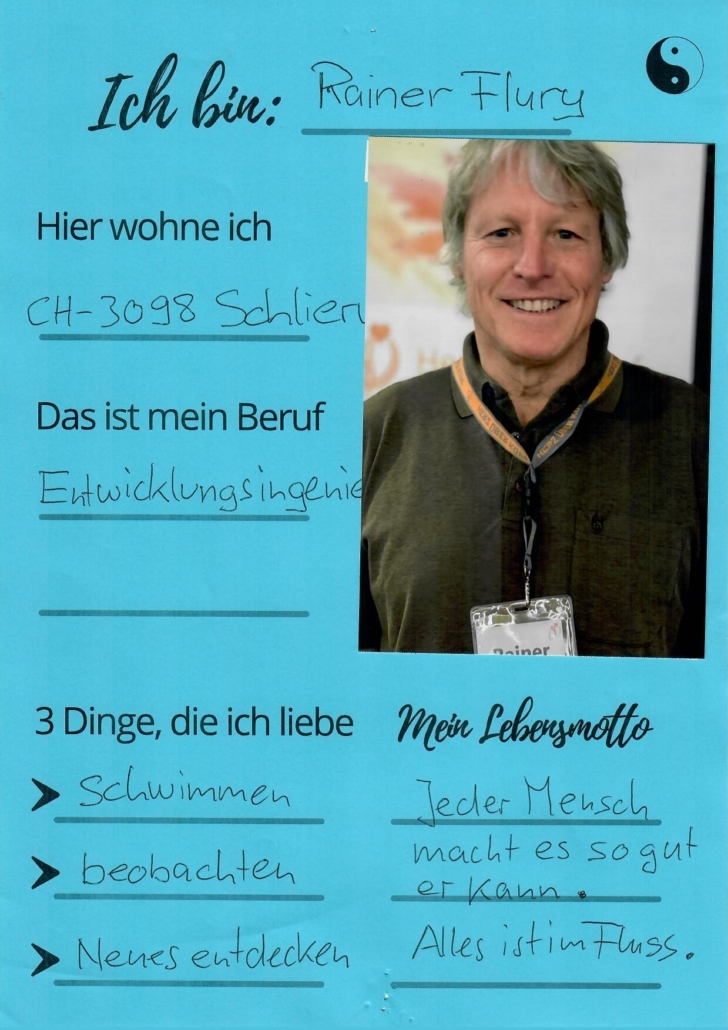 Ich bin: Rainer Flury
Hier wohne ich
CH-3098 Schliern
Das ist mein Beruf
Entwicklungsingenie
3 Dinge, die ich liebe
Schwimmen
beobachten
Neues entdecken
Mein Lebensmotto
Jeder Mensch
macht es so gut
er kann.
Alles ist im Fluss.
Rainer